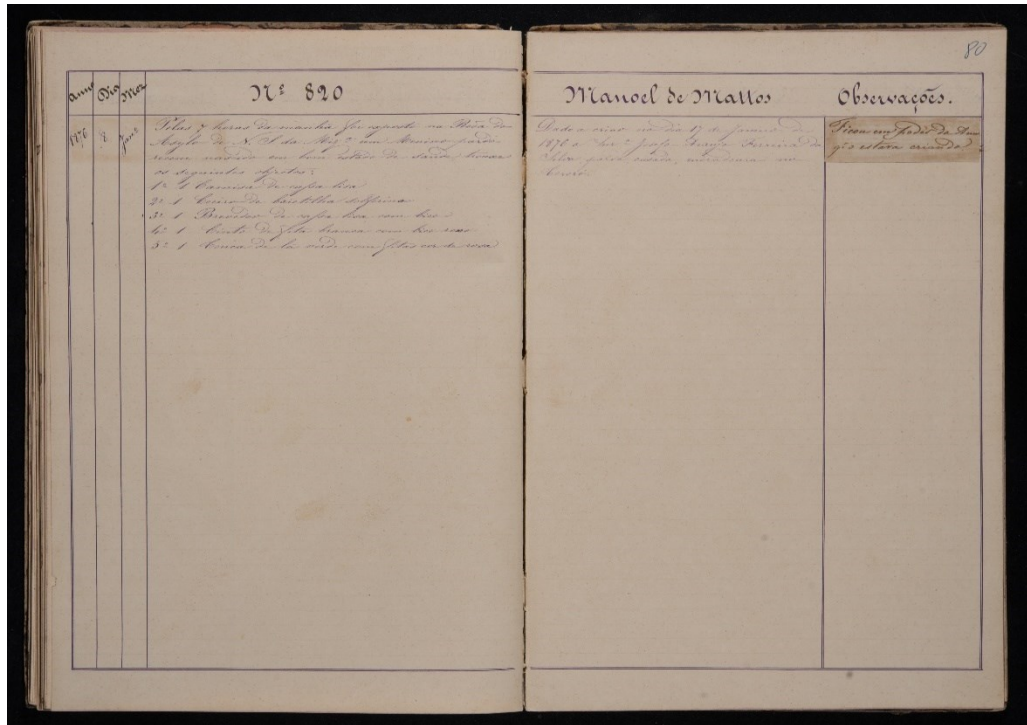 80
Anno Dia Mez Nº 820 Manoel de Mattos Observações.
1876 8 Janº
Pelas 7 horas da manhã foi exposto na Roda do
Asylo de N. S. da Mizª um Menino pardo
recem nascido em bom estado de saude trouxe
os seguintes objetos:
1º 1 Camisa de cassa lisa
2º 1 Cueiro de baetilha
3º 1 de cassa lisa com bico
4º 1 Cinto de fita branca com bico roxo
5º 1 Touca de lã verde com fitas cor de rosa
Dado a criar no dia 17 de Janeiro de
1876 a Snrª Ferreira da
Silva para moradora no
Ficou em poder da
q o estava criando